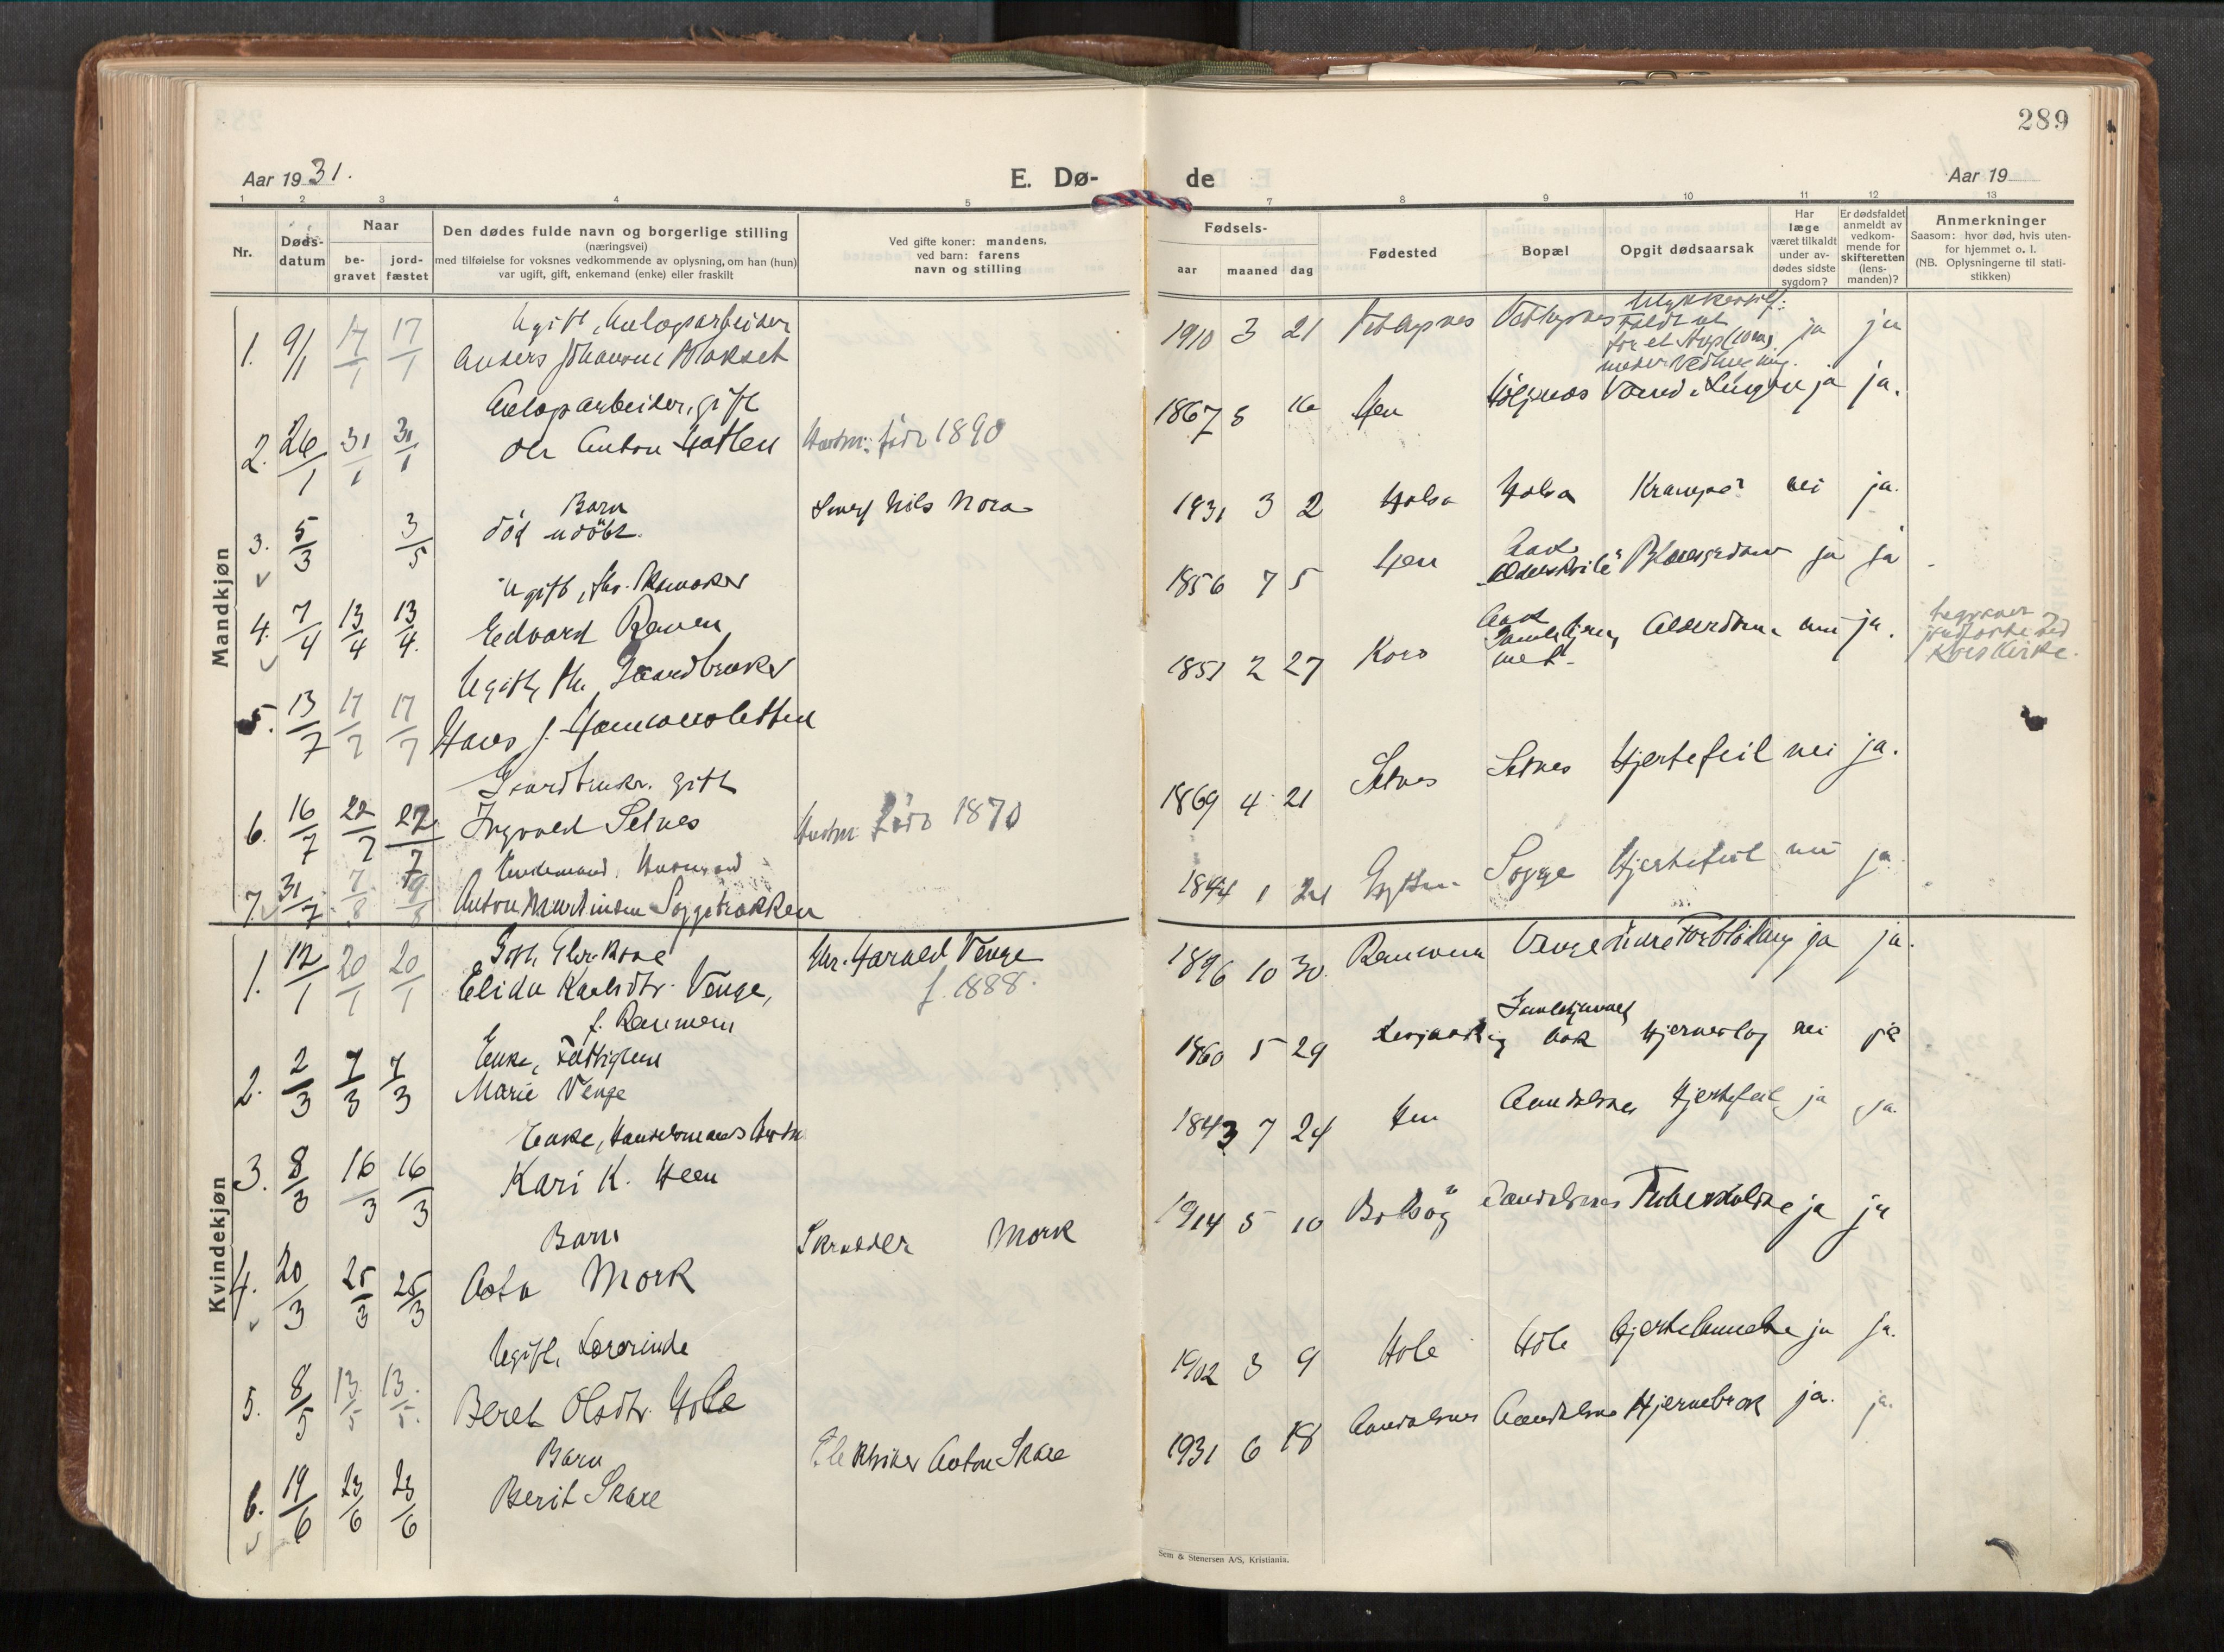 289
Aar 1931.
E. Dø-
de
Aar 19
1 2 3 4 5 7 8 9 10 11 12 13
Nr.
Døds-
datum
Naar
be-
gravet
jord-
fæstet
Den dødes fulde navn og borgerlige stilling
(næringsvei)
med tilføielse for voksnes vedkommende av oplysning, om han (hun)
var ugift, gift, enkemand (enke) eller fraskilt
Ved gifte koner: mandens,
ved barn: farens
navn og stilling
Fødsels-
aar maaned dag
Fødested
Bopæl
Opgit dødsaarsak
Har
læge
været tilkaldt
under av-
dødes sidste
sygdom?
Er dødsfaldet
anmeldt av
vedkom-
mende for
skifteretten
(lens-
manden)?
Anmerkninger
Saasom: hvor død, hvis uten-
for hjemmet o. l.
(NB. Oplysningerne til stati-
stikken)
Mandkjøn
Ugift, Anlægsarbeider
1. 9/1 17/1 17/1 Anders Johansen
1910 3 21 ja ja
Faldt ut
for et Stup (10 m)
under Vedhugning.
Anlægsarbeider, gift
2. 26/1 31/1 31/1 Ole Anton Hatlen Hustru: født 1890
1867 5 16 Hen Vand i Lungen ja ja.
Barn
3. 5/3 3/5 død udøbt. Nils Mora
1931 3 2 Holsa Holsa Krampe? nei ja.
Ugift, fhv. Skomaker
4. 7/4 13/4 13/4. Edvard
1856 7 5 Hen Aak ja ja
Ugift, fhv. Gaardbruker
5. 13/7 17/7 17/7 Hans J.
1851 2 27 Kors Aak Gamlehjem Alderdom nei ja.
begravet og
jordfæstet ved
Kors Kirke.
Gaardbruker, gift
6. 16/7 22/7 22/7 Ingvald Setnes Hustru født 1870
1869 4 21 Setnes Setnes Hjertefeil nei ja.
Enkemand, Husmand
7. 31/7 7/8 9/8 Anton Martinsen Soggebakken
1844 1 24 Sogge Hjertefeil nei ja
Kvindekjøn
1. 12/1 20/1 20/1 Elida Karlsdtr. Venge, Chr. Harald Venge
f. 1888.
1896 10 30. Venge Forblødning ja ja.
Enke, Fattiglem
2. 2/3 7/3 7/3 Marie Venge
1860 5 29 Gamlehjemmet
Aak Hjerneslag nei ja
Enke, Handelsmands
3. 8/3 16/3 16/3 Kari K. Heen
1843 7 24 Hen Aandalsnes Hjertefeil ja ja.
Barn
4. 20/3 25/3 25/3 Asta Mork Skrædder Mork
1914 5 10 Bolsøy Aandalsnes Tuberkulose ja ja
Ugift, Lærerinde
5. 8/5 13/5 13/5. Beret Olsdtr. Hole
1902 3 9 Hole Hole Hjertelammelse ja ja.
Barn
6. 19/6 23/6 23/6 Berit Skare Elektriker Anton Skare
1931 6 18 Aandalsnes Aandalsnes Hjernebrok ja. ja.
Sem & Stenersen A/S, Kristiania.